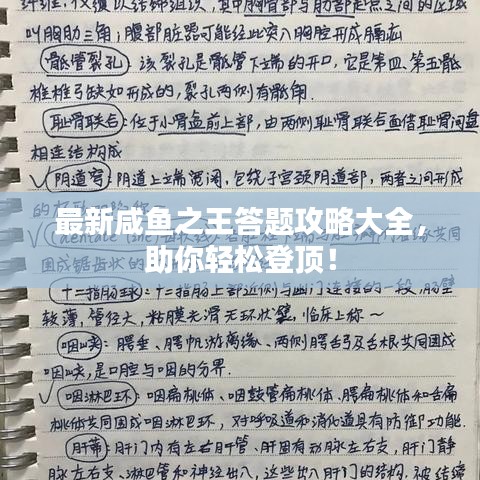 纤维，仅填以结缔组织，其中胸骨部与肋部起点之间的区域
叫胸肋三角；腹部脏器可能经此突入胸腔形成膈疝
骶管裂孔：该裂孔是骶管下端的开口，它是第四、第五骶
椎椎弓缺如形成的，裂孔两侧有骶角.
耻骨联合：位于小骨盆前上部，由两侧耻骨联合面借耻骨间盘
相连结构成
阴道穹：阴道上端宽阔，包绕子宫颈阴道部，两者之间形成
最新咸鱼之王答题攻略大全，
助你轻松登顶！
共同围成锯齿状的
十二指肠球：十二指肠上部近侧与幽门连接的一段，肠壁
较薄，管径大，粘膜光滑无环状襞，临床上称～
咽峡：腭垂、腭帆游离缘、两侧腭舌弓及舌根共同围成
咽峡，是口腔与咽的分界.
咽淋巴环：咽扁桃体、咽鼓管扁桃体、腭扁桃体和舌扁
桃体共同围成咽淋巴环，对呼吸道和消化道具有防御功能.
肝蒂：肝门内有左右肝管、肝固有动脉左右支，肝门静
脉左右支、淋巴管和神经出入，这些出入肝门的结构，被结缔